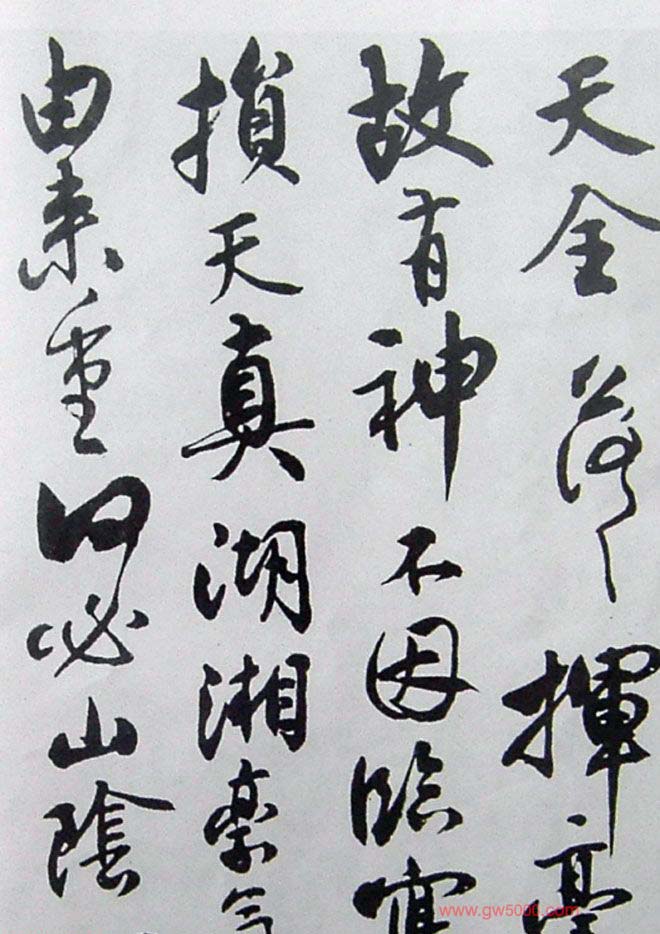 天全落々揮毫
故有神不因臨寫
損天真湖湘
由来重何必山陰
www.gw5000.com